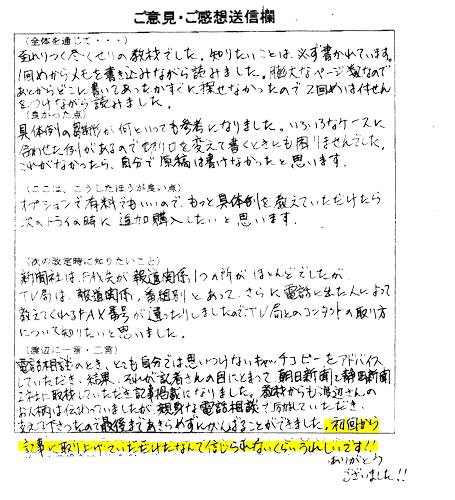 ご意見・ご感想送信欄
(全体を通じて・・・)
至れりつく尽くせりの教材でした。知りたいことは、必ず書かれています。
1回めからメモを書き込みながら読みました。膨大なページ数なので
あとからどこに書いてあったかすぐに探せなかったので2回めは付せん
をつけながら読みました。
(良かった点)
具体例の雛形が何といっても参考になりました。いろいろなケースに
合わせた例があるので切り口を変えて書くときにも困りませんでした。
これがなかったら、自分で原稿は書けなかったと思います。
(ここは、こうしたほうが良い点)
オプションで有料でもいいので、もっと具体例を教えていただけたら
次のトライの時に追加購入したいと思います。
(次の改定時に知りたいこと)
新聞社は、FAX先が報道関係1つの所がほとんどでしたが、
TV局は、報道関係、番組別とあって、さらに電話に出た人によって
教えてくれるFAX番号が違ったりしましたのでTV局とのコンタクトの取り方
について知りたいと思いました。
(渡辺に一言・二言)
電話相談のとき、とても自分では思いつけないキャッチコピーをアドバイス
していただき、結果、それが記者さんの目にとまって、朝日新聞と静岡新聞
2社に取材していただき記事掲載になりました。教材からも渡辺さんの
お人柄は伝わっていましたが親身な電話相談で励ましていただき、
支えて下さったので最後まであきらめずにがんばることができました。初回から
記事に取り上げていただけたなんて信じられないくらいうれしいです!!
ありがとう
ございました!!